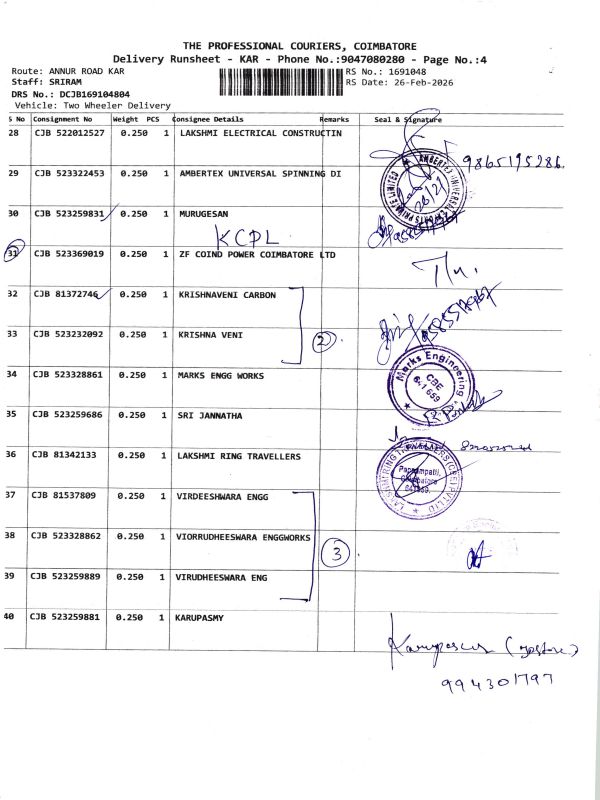 THE PROFESSIONAL COURIERS, COIMBATORE
Delivery Runsheet - KAR - Phone No.:9047080280 - Page No.:4
Route: ANNUR ROAD KAR
RS No.: 1691048
Staff: SRIRAM
RS Date: 26-Feb-2026
DRS No.: DCJB169104804
Vehicle: Two Wheeler Delivery
S No Consignment No Weight PCS Consignee Details Remarks Seal & Signature
28 CJB 522012527 0.250 1 LAKSHMI ELECTRICAL CONSTRUCTIN
9865195286.
29 CJB 523322453 0.250 1 AMBERTEX UNIVERSAL SPINNING DI
30 CJB 523259831 0.250 1 MURUGESAN
KCPL
31 CJB 523369019 0.250 1 ZF COIND POWER COIMBATORE LTD
32 CJB 81372746 0.250 1 KRISHNAVENI CARBON
33 CJB 523232092 0.250 1 KRISHNA VENI
2
34 CJB 523328861 0.250 1 MARKS ENGG WORKS
Marks Engineering
CBE
35 CJB 523259686 0.250 1 SRI JANNATHA
36 CJB 81342133 0.250 1 LAKSHMI RING TRAVELLERS
37 CJB 81537809 0.250 1 VIRDEESHWARA ENGG
38 CJB 523328862 0.250 1 VIORRUDHEESWARA ENGGWORKS
3
39 CJB 523259889 0.250 1 VIRUDHEESWARA ENG
40 CJB 523259881 0.250 1 KARUPASMY
994301797